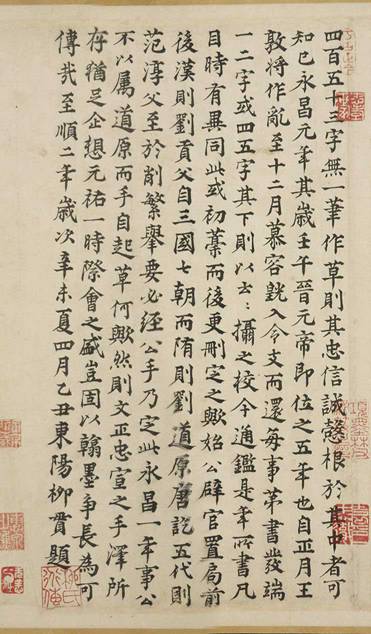 四百五十三字無一筆作草則其忠信誠愨根於其中者可
知已永昌元年其歲壬午晉元帝即位之五年也自正月王
敦將作亂至十二月慕容皝入令支而還每事第書發端
一二字或四五字其下則以云云攝之校今通鑑是年所書凡
目時有異同此或初藁而後更刪定之歟始公辟官置局前
後漢則劉貢父自三國七朝而隋則劉道原唐訖五代則
范淳父至於削繁舉要必經公手乃定此永昌一年事公
不以屬道原而手自起草何歟然則文正忠宣之手澤所
存猶足企想元祐一時際會之盛豈固以翰墨爭長為可
傳哉至順二年歲次辛未夏四月乙丑東陽柳貫題